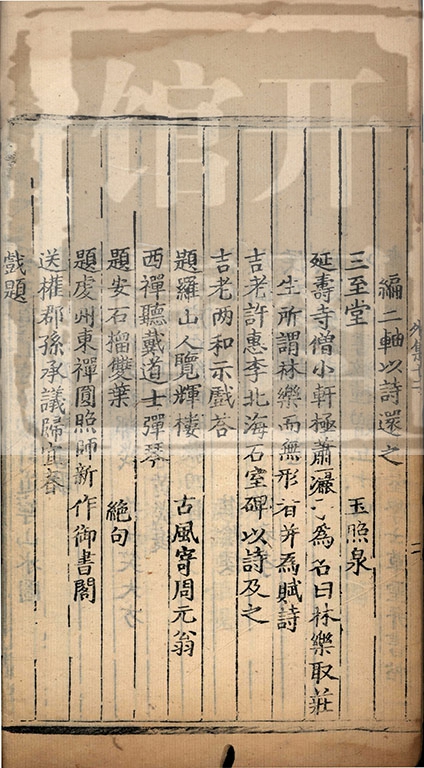 編二軸以詩還之
三至堂 玉照泉
延壽寺僧小軒極蕭灑予為名曰林樂取莊
生所謂林樂而無形者并為賦詩
吉老許惠李北海石室碑以詩及之
吉老两和示戲答
題羅山人覽輝樓 古風寄周元翁
西禪聽戴道士彈琴
題安石榴雙葉 絶句
題虔州東禪圓照師新作御書閣
送權郡孫承議歸宜春
戲題
开
馆